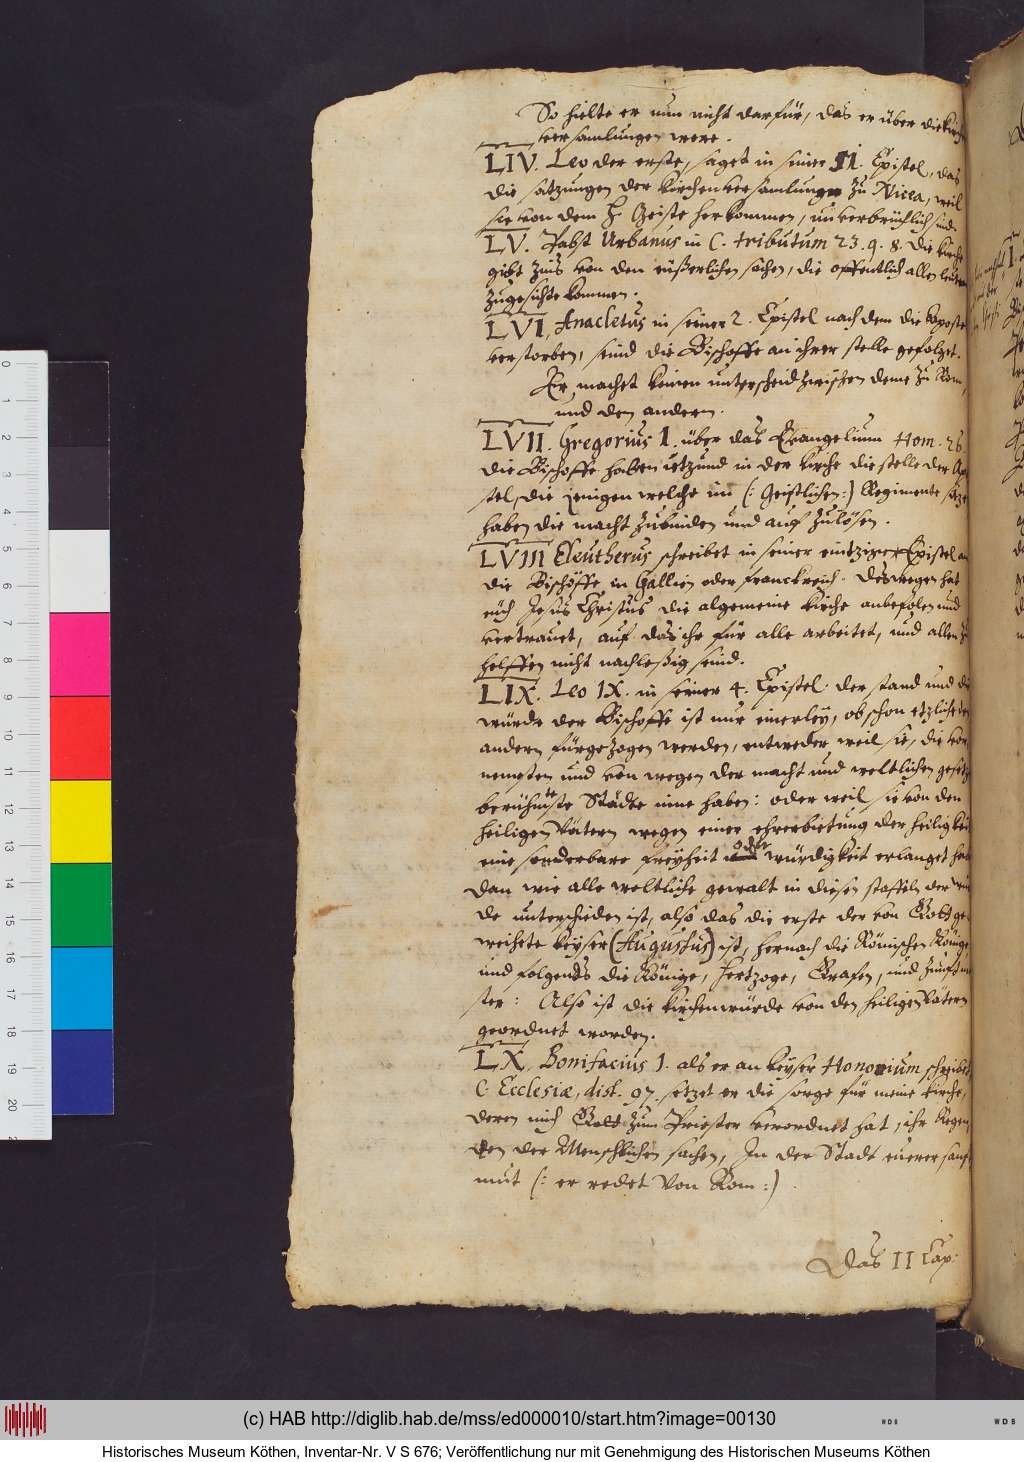 So hielte er nun nicht darfür, das er über die kirch
versamlungen were.
LIV. Leo der erste, saget in seiner 51. Epistel, das
die satzungen der kirchenversamlungen zu Nicea, weil
sie von dem H. Geiste herkommen, unverbrüchlich sind.
LV. Pabst Urbanus in C. tributum 23. q. 8. die kirche
gibt zins von den eüßerlichen sachen, die offentlich allen leuten
zugesichte kommen.
LVI. Anacletus in seiner 2. Epistel nach dem die Aposte
verstorben, seind die Bischoffe an ihrer stelle gefolget.
Er machet keinen unterscheid zwischen deme zu Rom,
und den andern.
LVII. Gregorius I. über das Evangelium Hom. 26
die Bischoffe haben ietzund in der kirche die stelle der Apo
stel, die jenigen welche im (: Geistlichen:) Regimente sitze
haben die macht zubinden und auf zulösen.
LVIII Eleutherus schreibet in seiner eintzigen Epistel an
die Bischöffe in Gallien oder franckreich. deswegen hat
euch Jesus Christus die algemeine kirche anbefolen und
vertrauet, auf das ihr für alle arbeitet, und allen zu
helffen nicht nachleßig seind.
LIX. Leo IX. in seiner 4. Epistel. der stand und die
würde der Bischoffe ist nur einerley, ob schon etzliche den
andern fürgezogen werden, entweder weil sie, die vor,
nemsten und von wegen der macht und weltlichen gesetz
berühmteste Städte inne haben: oder weil sie von den
heiligen Vätern wegen einer ehrerbietung der heiligkeit
eine sonderbare freyheit oder würdigkeit erlanget hab
dan wie alle weltliche gewalt in diesen staffeln der wür
de unterschieden ist, also das die erste der von Gott ge,
weihete keyser (Augustus) ist, hernach die Römischen Könige
und folgends die Könige, Hertzoge, Grafen, und Zunftmei
ster: Also ist die kirchenwürde von den heiligen Vätern
geordnet worden.
LX. Bonifacius I. als er an keyser Honorium schreibet,
C. Ecclesiæ, dist. 97. setzet er die sorge für meine kirche,
deren mich Gott zum Priester verordnet hat, ihr Regen,
ten der Menschlichen sachen, In der Stadt eurer sanf,
mut (: er redet von Rom :)
Das II Cap:
0 1 2 3 4 5 6 7 8 9 10 11 12 13 14 15 16 17 18 19 20
(c) HAB http://diglib.hab.de/mss/ed000010/start.htm?image=00130
Historisches Museum Köthen, Inventar-Nr. V S 676; Veröffentlichung nur mit Genehmigung des Historischen Museums Köthen